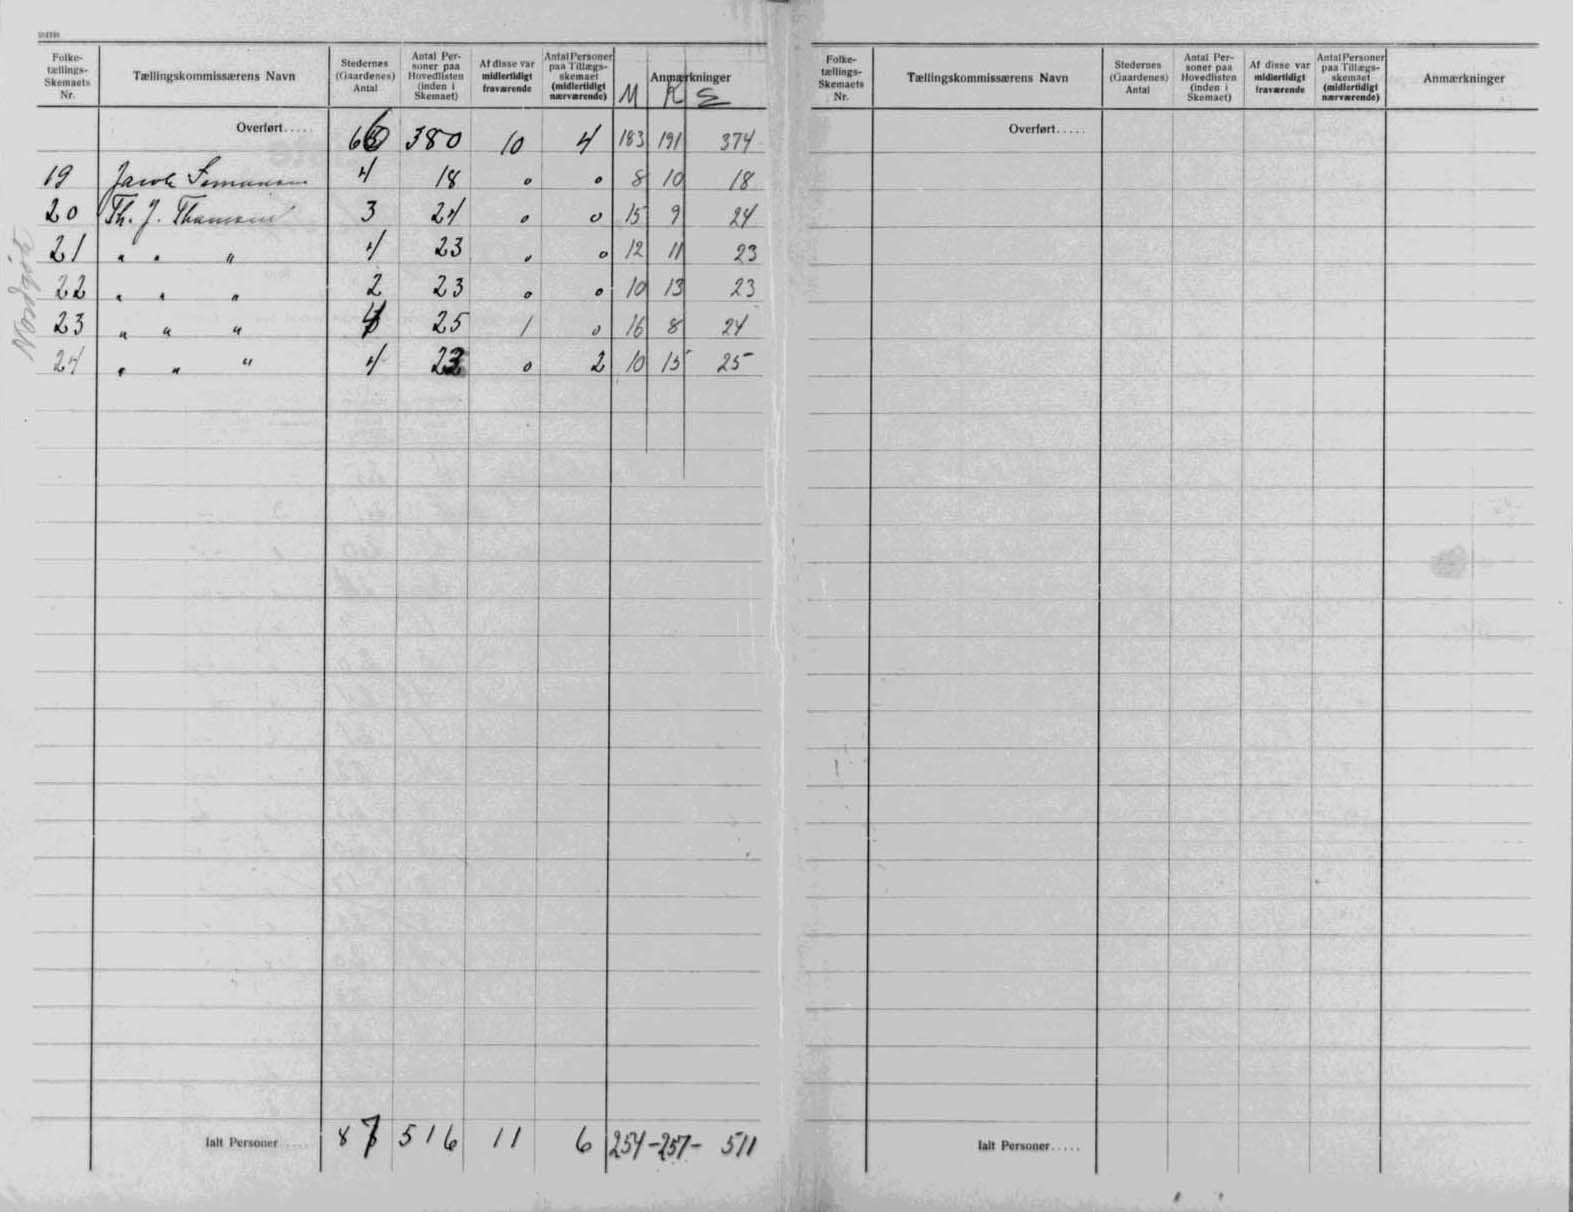 Folketællings-Skemaets Nr. Tællingskommissærens Navn Stedernes (Gaardenes) Antal Antal Personer paa Hovedlisten (inden i Skemaet) Af disse var midlertidigt fraværende Antal Personer paa Tillægsskemaet (midlertidigt nærværende) Anmærkninger
M K S
Overført..... 380 10 4 183 191 374
19 Jacob 4 18 0 0 8 10 18
20 Th. J. Thomsen 3 24 0 0 15 9 24
21 " " " 4 23 0 0 12 11 23
22 " " " 2 23 0 0 10 13 23
23 " " " 25 1 0 16 8 24
24 " " " 4 23 0 2 10 15 25
Ialt Personer..... 516 11 6 254 - 257 - 511
Folketællings-Skemaets Nr. Tællingskommissærens Navn Stedernes (Gaardenes) Antal Antal Personer paa Hovedlisten (inden i Skemaet) Af disse var midlertidigt fraværende Antal Personer paa Tillægsskemaet (midlertidigt nærværende) Anmærkninger
Overført.....
Ialt Personer.....